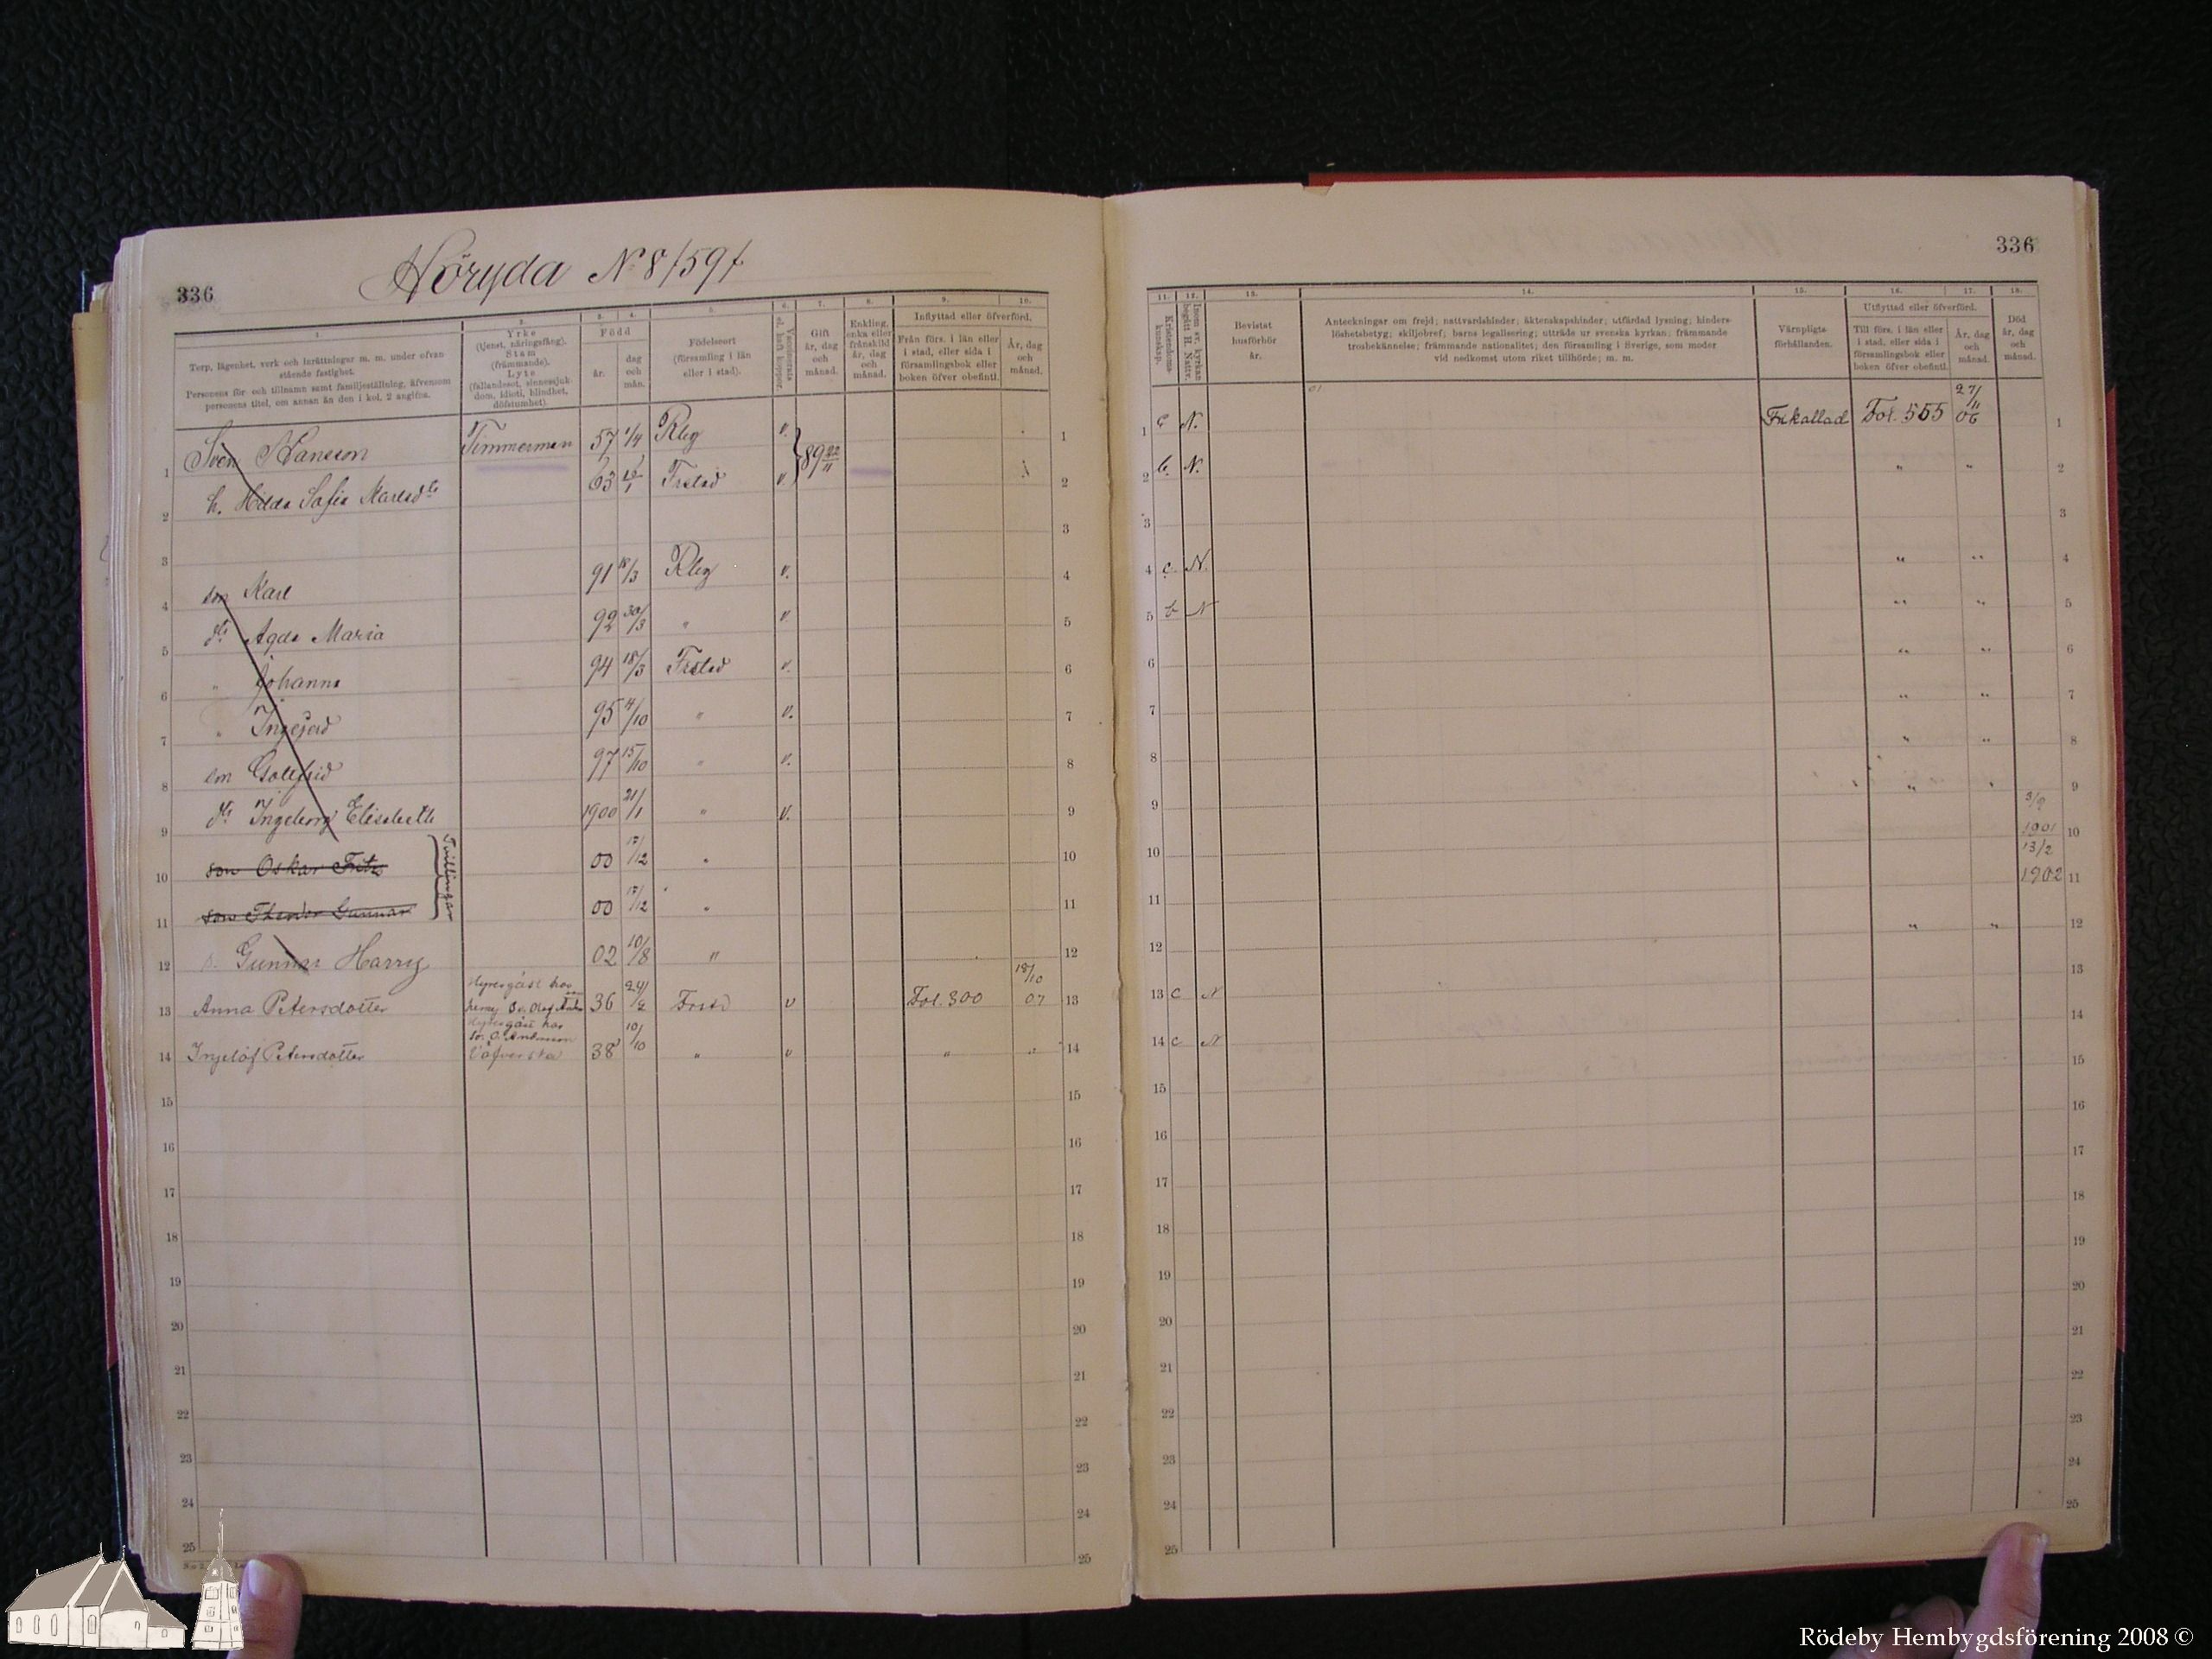 336
Höryda No 8/591
1.
Torp, lägenhet, verk och inrättningar m. m. under ofvan-
stående fastighet.
Personens för- och tillnamn samt familjeställning, äfvensom
personens titel, om annan än den i kol. 2 angifna.
2.
Yrke
(tjenst, näringsfång).
Stam
(främmande).
Lyte
(fallandesot, sinnessjuk-
dom, idioti, blindhet,
döfstumhet).
3. 4.
Född
år.
dag
och
mån.
5.
Födelseort
(församling i län
eller i stad).
6.
Vaccinerats
el. haft koppor.
7.
Gift
år, dag
och
månad.
8.
Enkling,
enka eller
frånskild
år, dag
och
månad.
9. 10.
Inflyttad eller öfverförd.
Från förs. i län eller
i stad, eller sida i
församlingsbok eller
boken öfver obefintl.
År, dag
och
månad.
1 Sven Hansson Timmerman 57 1/4 Rby v. 89 22/11 1
2 h. Hilda Sofia Karlsdtr 63 Frstad v. 2
3 3
4 son Karl 91 18/3 Rby v. 4
5 dtr Agda Maria 92 30/3 " v. 5
6 " Johanna 94 18/3 Frstad v. 6
7 " Ingegerd 95 /10 " v. 7
8 son Gottfrid 97 15/10 " v. 8
9 dtr Ingeborg Elisabeth 1900 21/1 " v. 9
10 son Oskar Fritz 00 17/12 " 10
Tvillingar
11 son Theodor Gunnar 00 17/12 " 11
12 s. Gunnar Harry 02 10/8 " 12
13 Anna Petersdotter Hyresgäst hos 36 24/2 Frstd v Fol. 300 18/10 07 13
14 Ingelöf Petersdotter Hyresgäst hos 38 10/10 " v " " 14
15 15
16 16
17 17
18 18
19 19
20 20
21 21
22 22
23 23
24 24
25 25
336
11.
Kristendoms-
kunskap.
12.
Inom sv. kyrkan
begått H. Nattv.
13.
Bevistat
husförhör
år.
14.
Anteckningar om frejd; nattvardshinder; äktenskapshinder; utfärdad lysning; hinders-
löshetsbetyg; skiljobref; barns legalisering; utträde ur svenska kyrkan; främmande
trosbekännelse; främmande nationalitet; den församling i Sverige, som moder
vid nedkomst utom riket tillhörde; m. m.
15.
Värnpligts-
förhållanden.
16. 17.
Utflyttad eller öfverförd.
Till förs. i län eller
i stad, eller sida i
församlingsbok eller
boken öfver obefintl.
År, dag
och
månad.
18.
Död
år, dag
och
månad.
01
1 C N. Frikallad Fol. 555 27/11 06 1
2 b. N. " " 2
3 3
4 c. N. " " 4
5 b N " " 5
6 " " 6
7 " " 7
8 " " 8
9 " " 9
10 3/9 1901 10
11 13/2 1902 11
12 " " 12
13 c N 13
14 c N 14
15 15
16 16
17 17
18 18
19 19
20 20
21 21
22 22
23 23
24 24
25 25
Rödeby Hembygdsförening 2008 ©